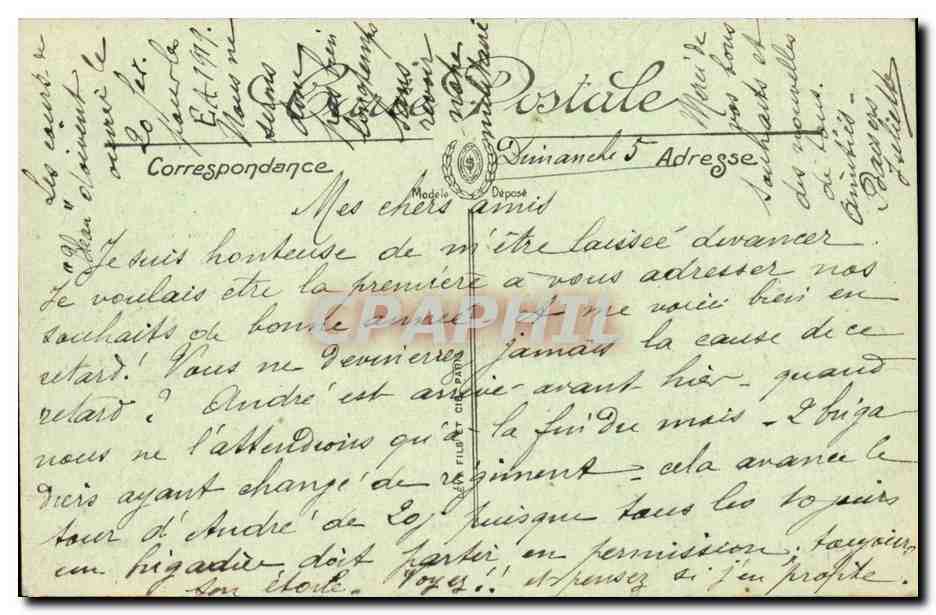 Carte Postale
Correspondance
Adresse
Modèle Déposé
CAPHIL
LÉVY FILS ET CIE PARIS
Dimanche 5
Mes chers amis
Je suis honteuse de m'être laissée devancer.
Je voulais être la première à vous adresser nos
souhaits de bonne année et me voici bien en
retard! Vous ne devinerez jamais la cause de ce
retard? André est arrivé avant hier - quand
nous ne l'attendions qu'à la fin du mois - 2 briga
diers ayant changé de régiment - cela avance le
tour d'André de 20j puisque tous les 10 jours
un brigadier doit partir en permission. toujours
son étoile. Voyez!! et pensez si j'en profite.
Les cours de
"Jean"
ouvri le
20 
pour la
Nous ne
serons
donc
pas bien
longtemps
sans
revoir
notre
militaire
Merci de
vos bons
souhaits et
des nouvelles
de tous.
Amitiés -
Baisers
Juliette